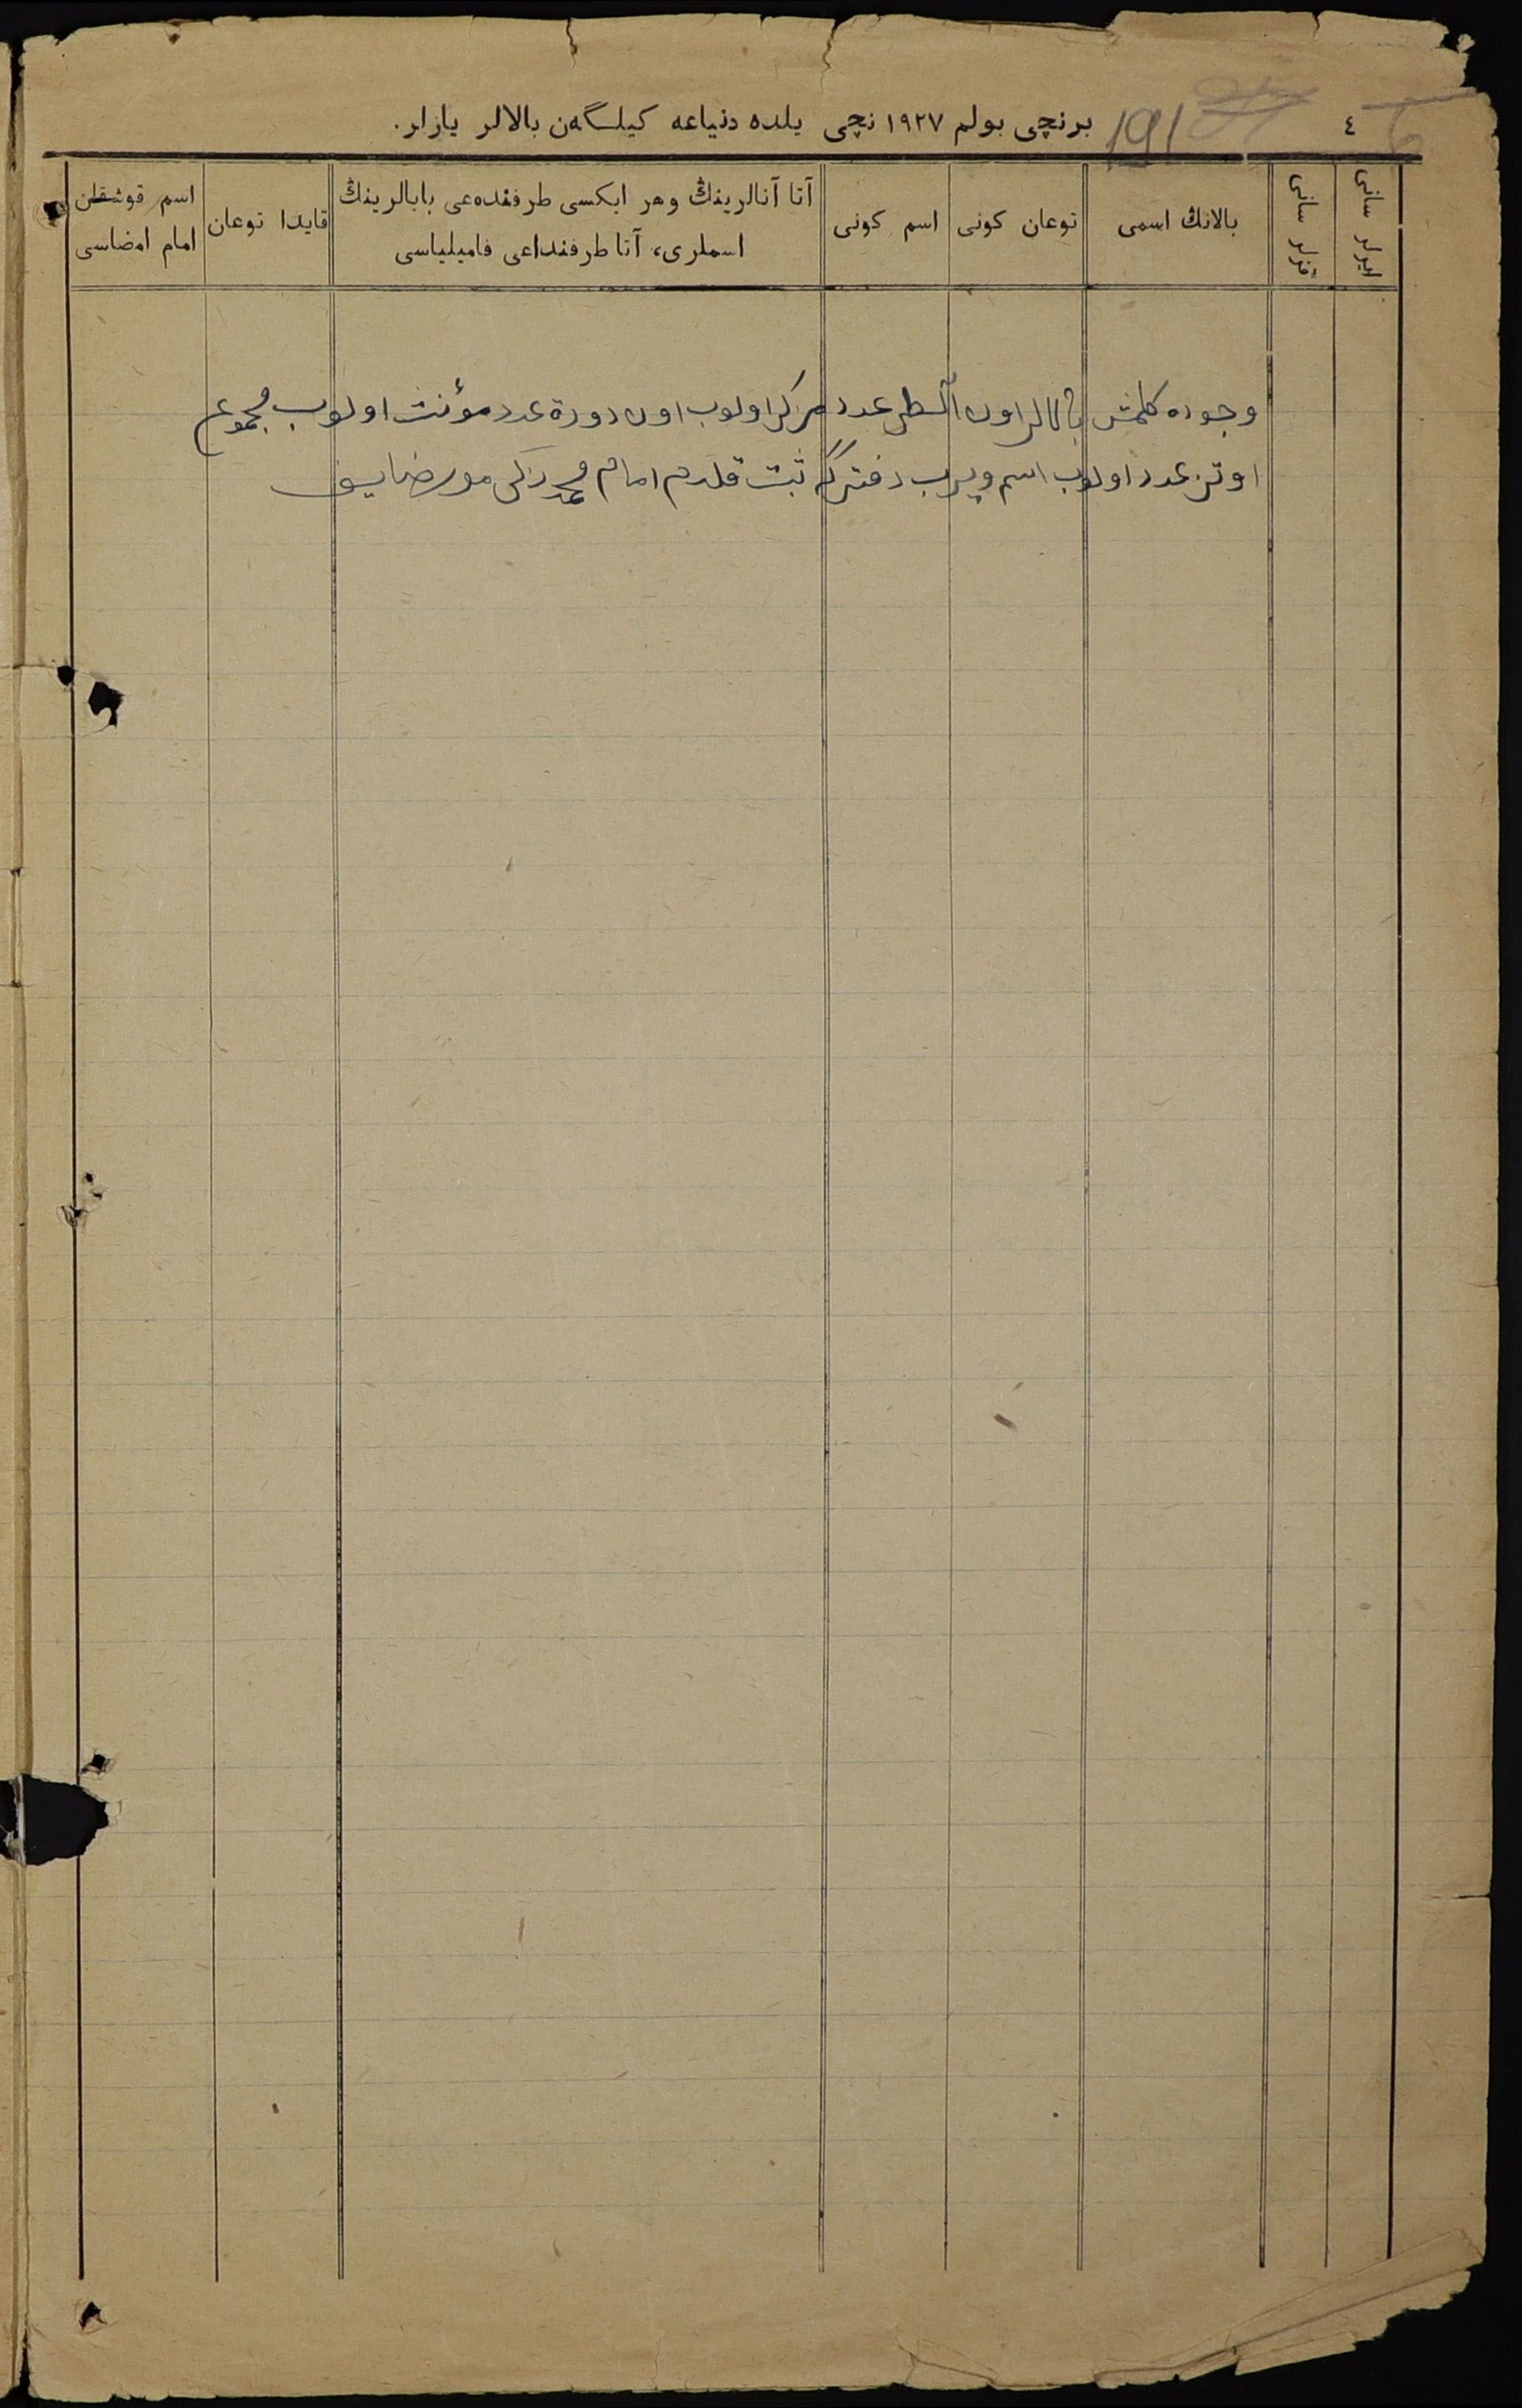 ٤
برنچی بولم ١٩٢٧ نچی یلده دنیاعه کیلگەن بالالر یازلر.
191
ایرلر سانی
قزلر سانی
بالانڭ اسمی
توعان کونی
اسم کونی
آتا آنالرینڭ وهر ایکسی طرفنده‌عی بابالرینڭ
اسملری، آتا طرفنداعی فامیلیاسی
قایدا توعان
اسم قوشقان
امام امضاسی
وجوده کلمش بالالر اون آلطی عدد مذکر اولوب اون دورة عدد مؤنث اولوب مجموع
اوتز عدد اولوب اسم ویرب دفترگه ثبت قلدم امام محمد زکی